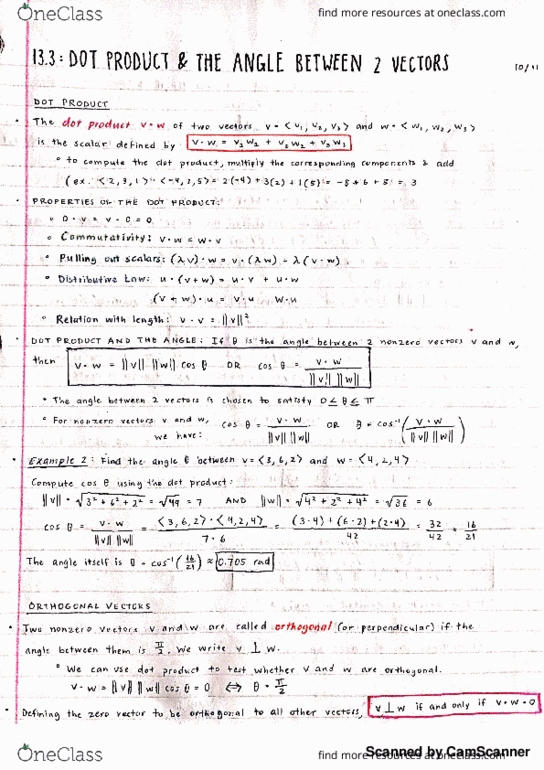 OneClass
find more resources at oneclass.com
13.3: DOT PRODUCT & THE ANGLE BETWEEN 2 VECTORS
10/11
DOT PRODUCT
• The dot product v·w of two vectors v=<v₁, v₂, v₃> and w=<w₁, w₂, w₃>
is the scalar defined by v·w = v₁w₁ + v₂w₂ + v₃w₃
• to compute the dot product, multiply the corresponding components & add
(ex. <2,3,1>·<-4,2,5> = 2(-4)+3(2)+1(5) = -8+6+5 = 3
• PROPERTIES OF THE DOT PRODUCT:
• 0·v = v·0 = 0
• Commutativity: v·w = w·v
• Pulling out scalars: (λv)·w = v·(λw) = λ(v·w)
• Distributive Law: u·(v+w) = u·v + u·w
(v+w)·u = v·u w·u
• Relation with length: v·v = ||v||²
• DOT PRODUCT AND THE ANGLE: If θ is the angle between 2 nonzero vectors v and w,
then v·w = ||v|| ||w|| cos θ OR cos θ = v·w / ||v|| ||w||
• The angle between 2 vectors is chosen to satisfy 0 ≤ θ ≤ π
• For nonzero vectors v and w, we have: cos θ = v·w / ||v|| ||w|| OR θ = cos⁻¹(v·w / ||v|| ||w||)
• Example 2: Find the angle θ between v=<3,6,2> and w=<4,2,4>
Compute cos θ using the dot product:
||v|| = √3²+6²+2² = √49 = 7 AND ||w|| = √4²+2²+4² = √36 = 6
cos θ = v·w / ||v|| ||w|| = <3,6,2>·<4,2,4> / 7·6 = (3·4)+(6·2)+(2·4) / 42 = 32/42 = 16/21
The angle itself is θ = cos⁻¹(16/21) ≈ 0.705 rad
ORTHOGONAL VECTORS
• Two nonzero vectors v and w are called orthogonal (or perpendicular) if the
angle between them is π/2. We write v ⊥ w.
• We can use dot product to test whether v and w are orthogonal.
v·w = ||v|| ||w|| cos θ = 0 ⇔ θ = π/2
• Defining the zero vector to be orthogonal to all other vectors, v ⊥ w if and only if v·w = 0
Scanned by CamScanner
OneClass
find more resources at oneclass.com